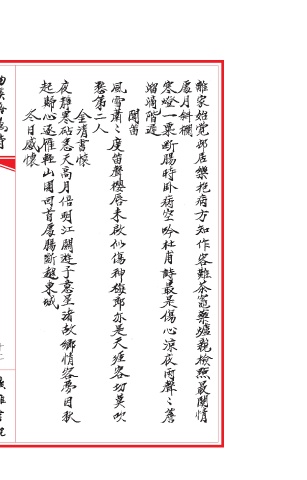 離家始覺郊居樂抱病方知作客難茶竈藥爐親檢點最關情
處月斜欄
寒燈一粟斷腸時臥病空吟杜甫詩最是傷心涼夜雨聲聲簷
溜滴階遲
聞笛
風雪蕭蕭度笛聲櫻唇未啟似傷神雄郎亦是天涯客切莫吹
愁第二人
金清書懷
夜靜寒砧急天高月倍明江關遊子意星渚故鄉情客夢因秋
起歸心逐雁輕山園回首處腸斷越東城
冬日感懷